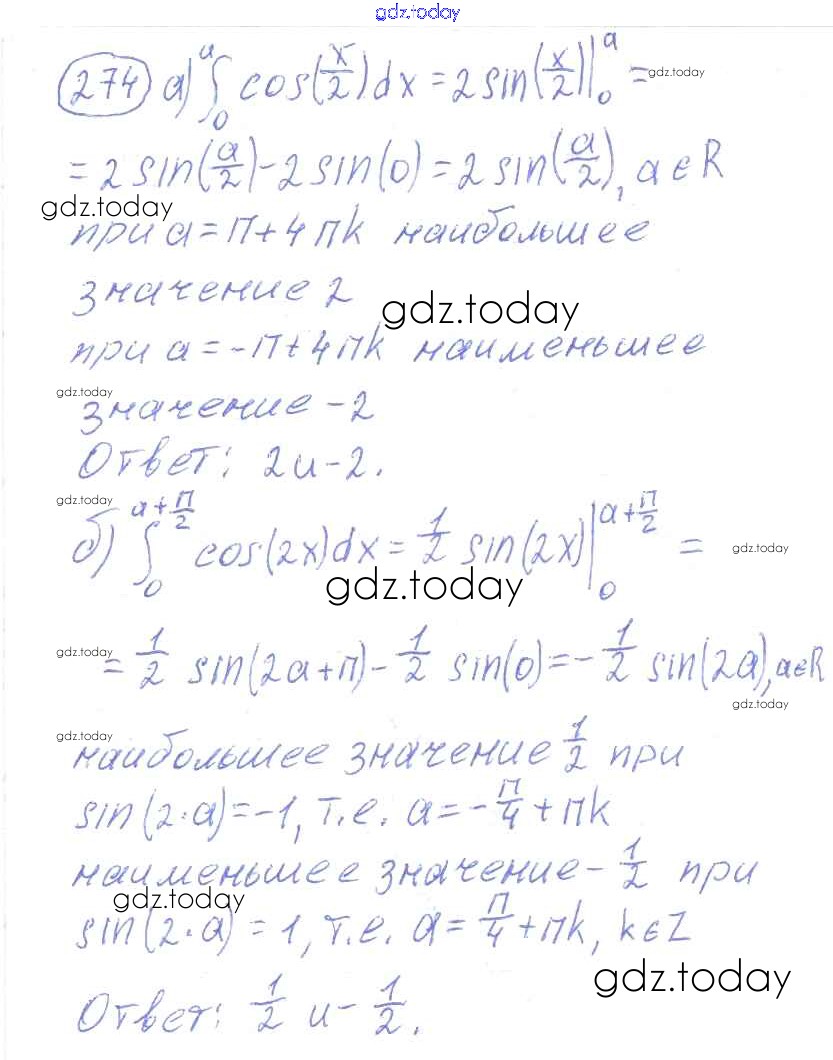 gdz.today
274 а) ∫₀ᵃ cos(x/2)dx = 2sin(x/2)|₀ᵃ = gdz.today
= 2sin(a/2) - 2sin(0) = 2sin(a/2), a∈R
gdz.today
при a = π + 4πk наибольшее
значение 2
gdz.today
при a = -π + 4πk наименьшее
gdz.today
значение -2
Ответ: 2 и -2.
gdz.today
б) ∫₀^(a+π/2) cos(2x)dx = 1/2 sin(2x)|₀^(a+π/2) = gdz.today
gdz.today
gdz.today
= 1/2 sin(2a+π) - 1/2 sin(0) = -1/2 sin(2a), a∈R
gdz.today
gdz.today
наибольшее значение 1/2 при
sin(2·a) = -1, т.е. a = -π/4 + πk
наименьшее значение -1/2 при
gdz.today
sin(2·a) = 1, т.е. a = π/4 + πk, k∈Z
gdz.today
Ответ: 1/2 и -1/2.